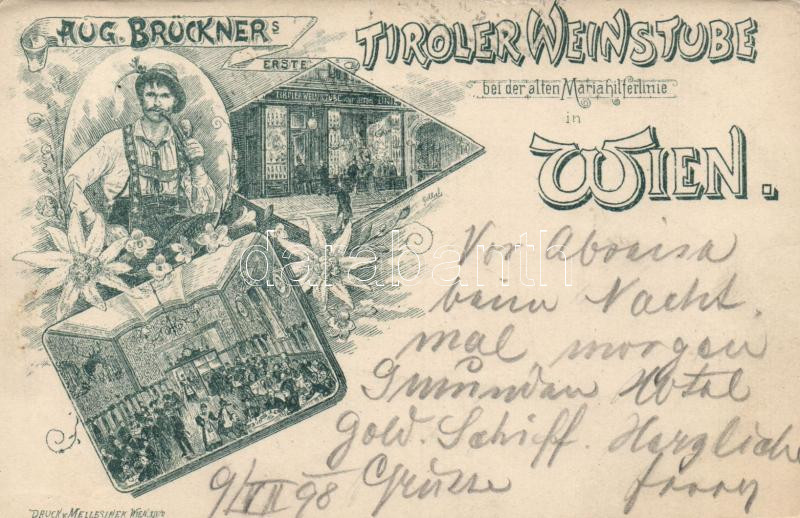 AUG. BRÜCKNERS
ERSTE
TIROLER WEINSTUBE
bei der alten Mariahilferlinie
in
WIEN.
Vor Abreise
beim Nacht
mal morgen
Gmunden Hotel
Gold. Schiff. Herzliche
9/VII 98 Grüsse
darabanth
DRUCK v. MELLESINEK WIEN